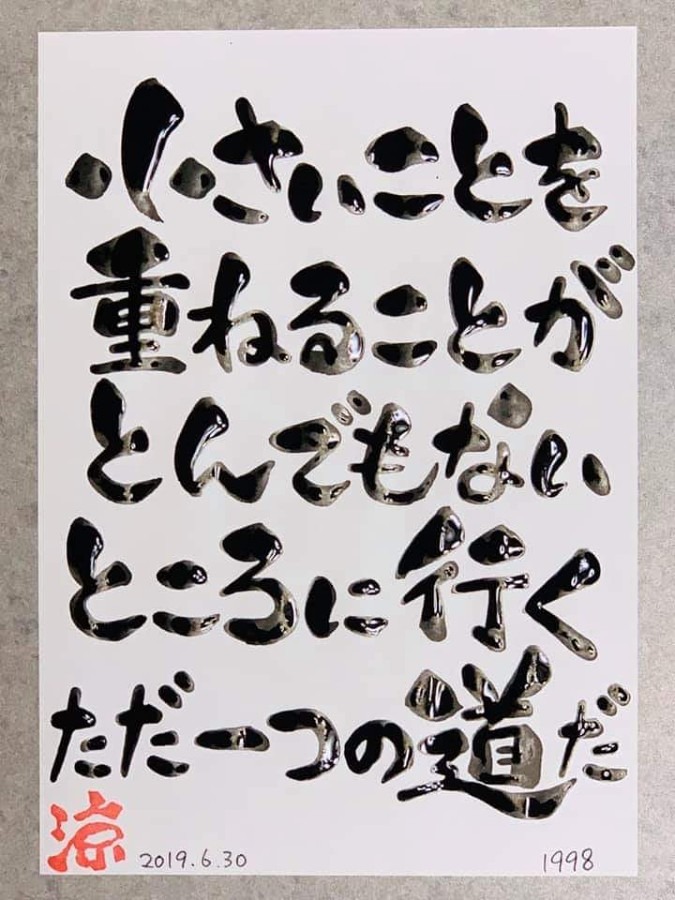 小さいことを
重ねることが
とんでもない
ところに行く
ただ一つの道だ
涼 2019.6.30 1998